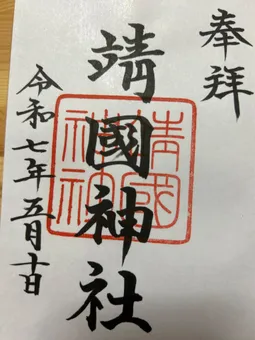 奉拝
靖國神社
靖國神社
令和七年五月十日